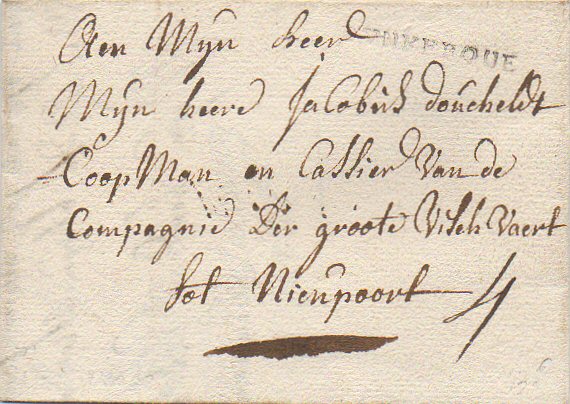 Aen Mijn heer
UNKERQUE
Mijn heere Jacobus doucheldt
Coop Man en Cassier Van de
Compagnie Der groote Visch Vaert
tot Nieupoort 4